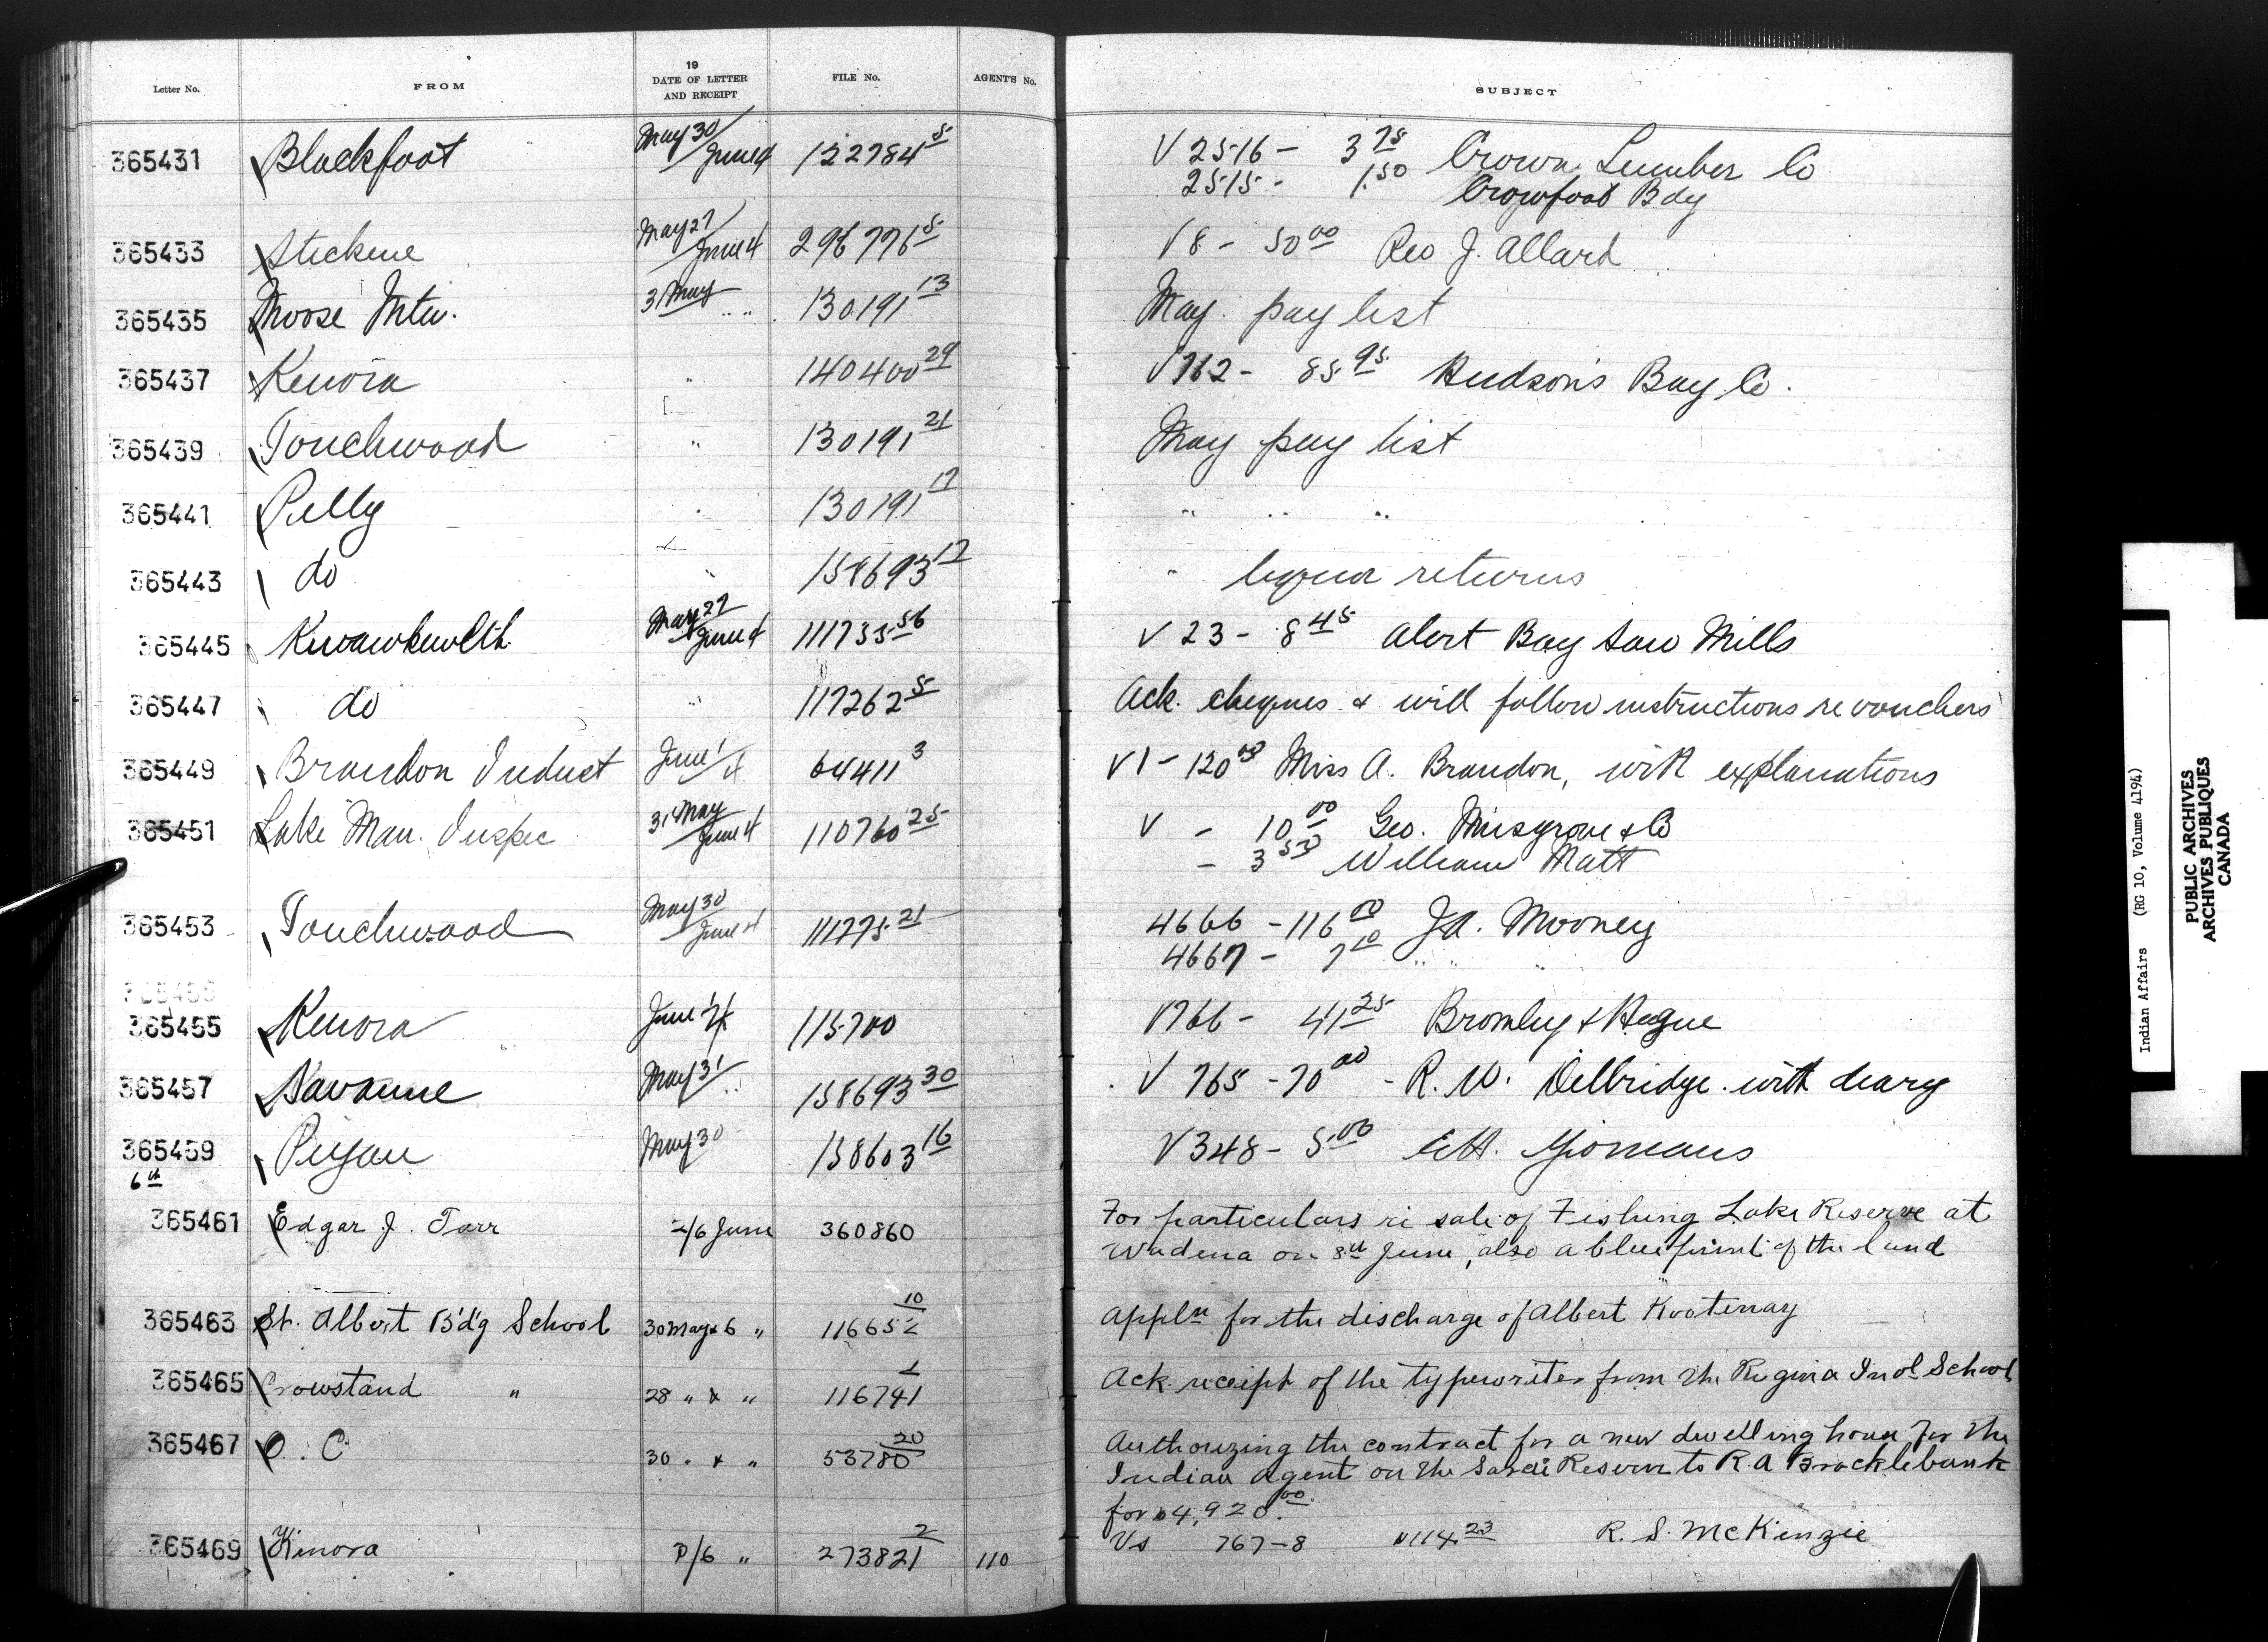 Letter No. FROM 19 DATE OF LETTER AND RECEIPT FILE No. AGENT'S No. SUBJECT
365431 Blackfoot May 30/June 4 122784 5 V 2516 - 3 75 Crown Lumber Co
2515 - 1.50 Crowfoot Bdg
365433 Stickene May 27/June 4 296776 5 V 8 - 50 00 Rev J. Allard
365435 Moose Mtn. 31 May " " 130191 13 May pay list
365437 Kenora " 140400 29 V 762 - 85 95 Hudson's Bay Co.
365439 Touchwood " 130191 21 May pay list
365441 Pelly " 130191 17 " " "
365443 do " 158693 17 " liquor returns
365445 Kwawkewlth May 27/June 4 111755 56 V 23 - 8 45 Alert Bay Saw Mills
365447 do " 117262 5 Ack. cheques & will follow instructions re vouchers
365449 Brandon Indust June 1/4 64411 3 V 1 - 120 00 Miss A. Brandon, with explanations
365451 Lake Man. Inspec 31 May/June 4 110760 25 V - 10 00 Geo. Musgrove & Co
- 3 50 William Matt
365453 Touchwood May 30/June 4 111775 21 4666 - 116 00 J.A. Mooney
4667 - 7 10 " " "
365455 Kenora June 1/4 115700 V 766 - 41 25 Bromley & Hague
365457 Savanne May 31/ " 158693 30 V 765 - 70 00 - R. W. Delbridge. with diary
365459 Piegan May 30 158603 16 V 348 - 5.00 E.H. Yiomans
6th
365461 Edgar J. Tarr 2/6 June 360860 For particulars re sale of Fishing Lake Reserve at
Wadena on 8th June, also a blueprint of the land
365463 St. Albert B'd'g School 30 May & 6 " 116652 10 Appln for the discharge of Albert Kootenay
365465 Crowstand " 28 " & " 116741 1 Ack. receipt of the typewriter from the Regina Indl School
365467 O. C. 30 " & " 53780 20 Authorizing the contract for a new dwelling house for the
Indian Agent on the Sarcee Reserve to R A Brocklebank
for $4,920.00.
365469 Kenora P/6 " 273821 2 110 Vs 767-8 $114 23 R. S. McKenzie
Indian Affairs (RG 10, Volume 4194)
PUBLIC ARCHIVES
ARCHIVES PUBLIQUES
CANADA